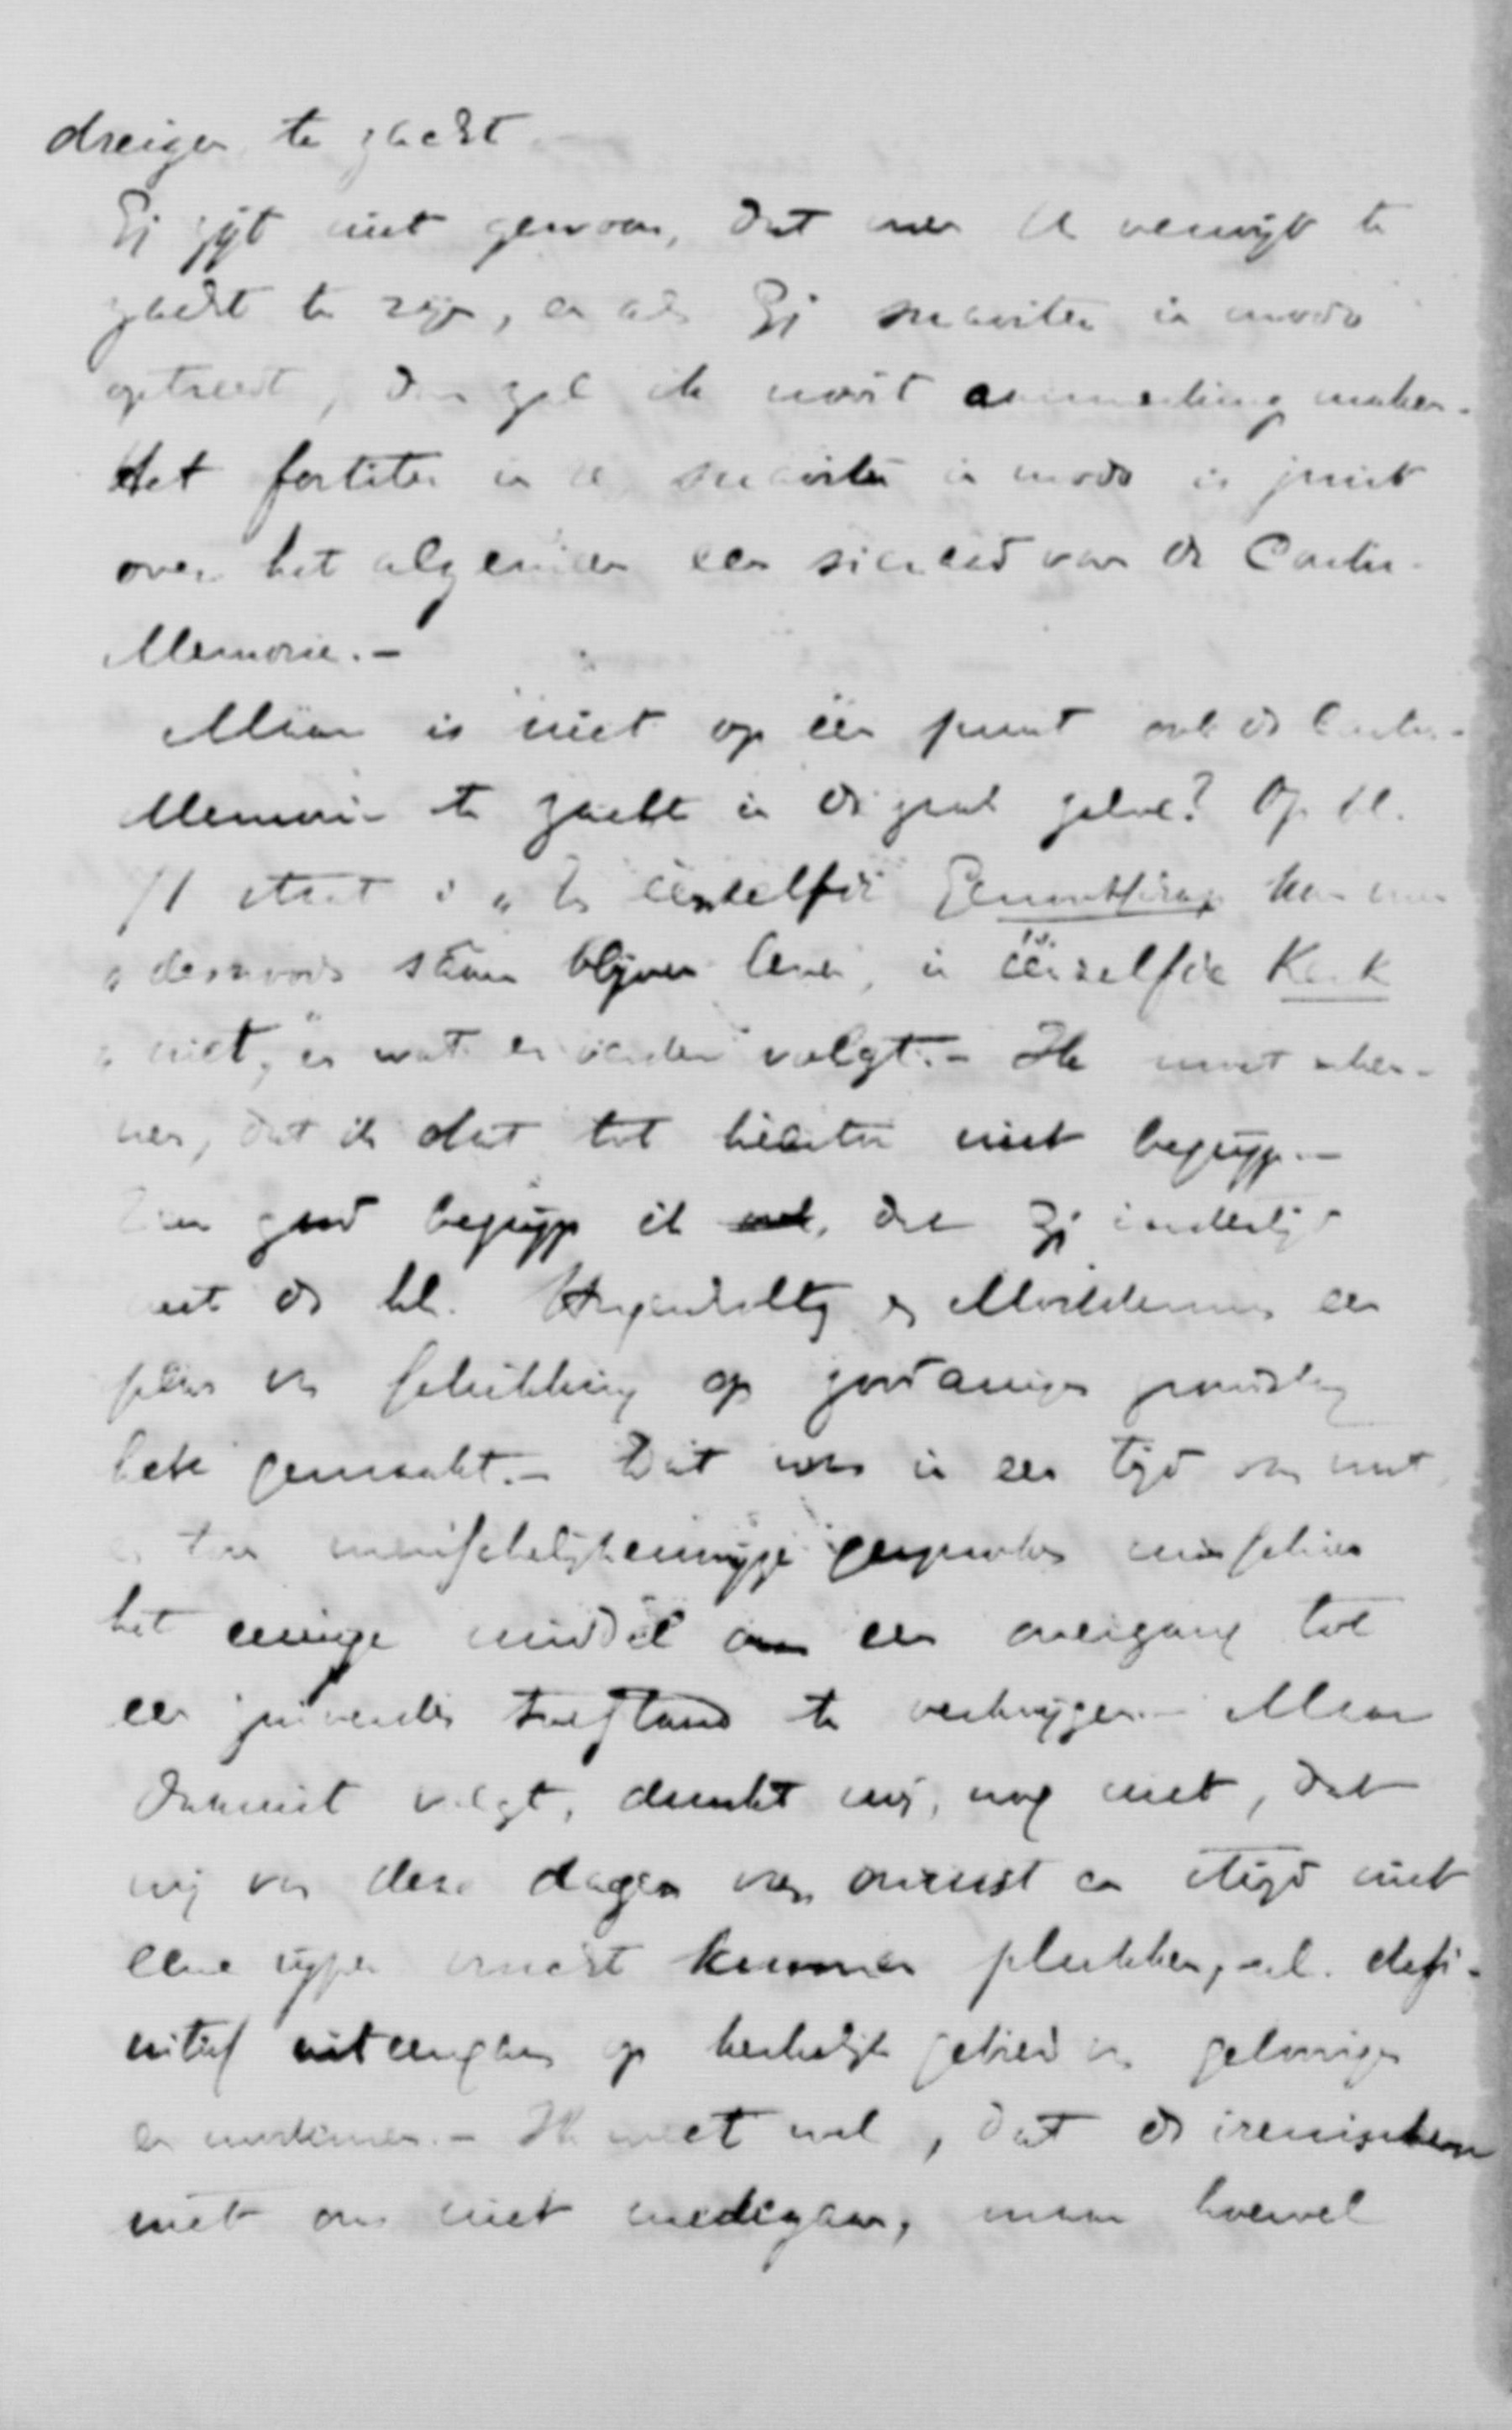 dreigen te zacht.
Gij zijt niet gewoon, dat men U verwijt te
zacht te zijn, en als Gij suaviter in modo
optreedt, dan zal ik nooit aanmerking maken.
Het fortiter in re suaviter in modo is juist
over het algemeen een sieraad van de Contra-
Memorie.-
Maar is niet op één punt ook de Contra-
Memorie te zacht in de zaak zelve? Op bl.
11 staat: "In eenzelfde Genootschap kan men
desnoods samen blijven leven, in eenzelfde Kerk
niet," en wat er verder volgt.- Ik moet erken-
nen, dat ik dat tot hiertoe niet begrijp.-
Zeer goed begrijp ik dat Gij indertijd
met de hh. Hugenholtz en een
plan van schikking op zoodanigen grondslag
hebt gemaakt.- Dat was in een tijd van rust
en toen menschelijkerwijze gesproken misschien
het eenige middel om een overgang tot
een zuiverder toestand te verkrijgen.- Maar
daaruit volgt, dunkt mij, nog niet, dat
wij van deze dagen van onrust en strijd niet
eene rijpe vrucht kunnen plukken, nl. defi-
nitief uiteengaan op kerkelijk gebied van geloovigen
en modernen.- Ik weet wel, dat de irenischen
met ons niet medegaan, maar hoewel